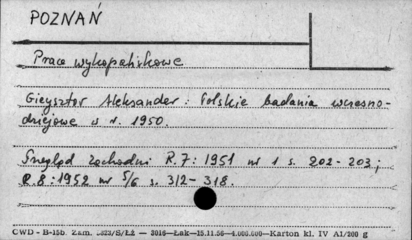 POZNAŃ
Prace wykopaliskowe
Gieysztor Aleksander: Polskie badania wczesno-
dziejowe w r. 1950.
Przegląd Zachodni R.7: 1951 nr 1 s. 202-203;
R.8: 1952 nr 5/6 s. 312-318.
CWD - B-15b. Zam. 5823/S/Łż — 3016—Łak—15.11.56—4.000.000—Karton kl. IV A1/200 g